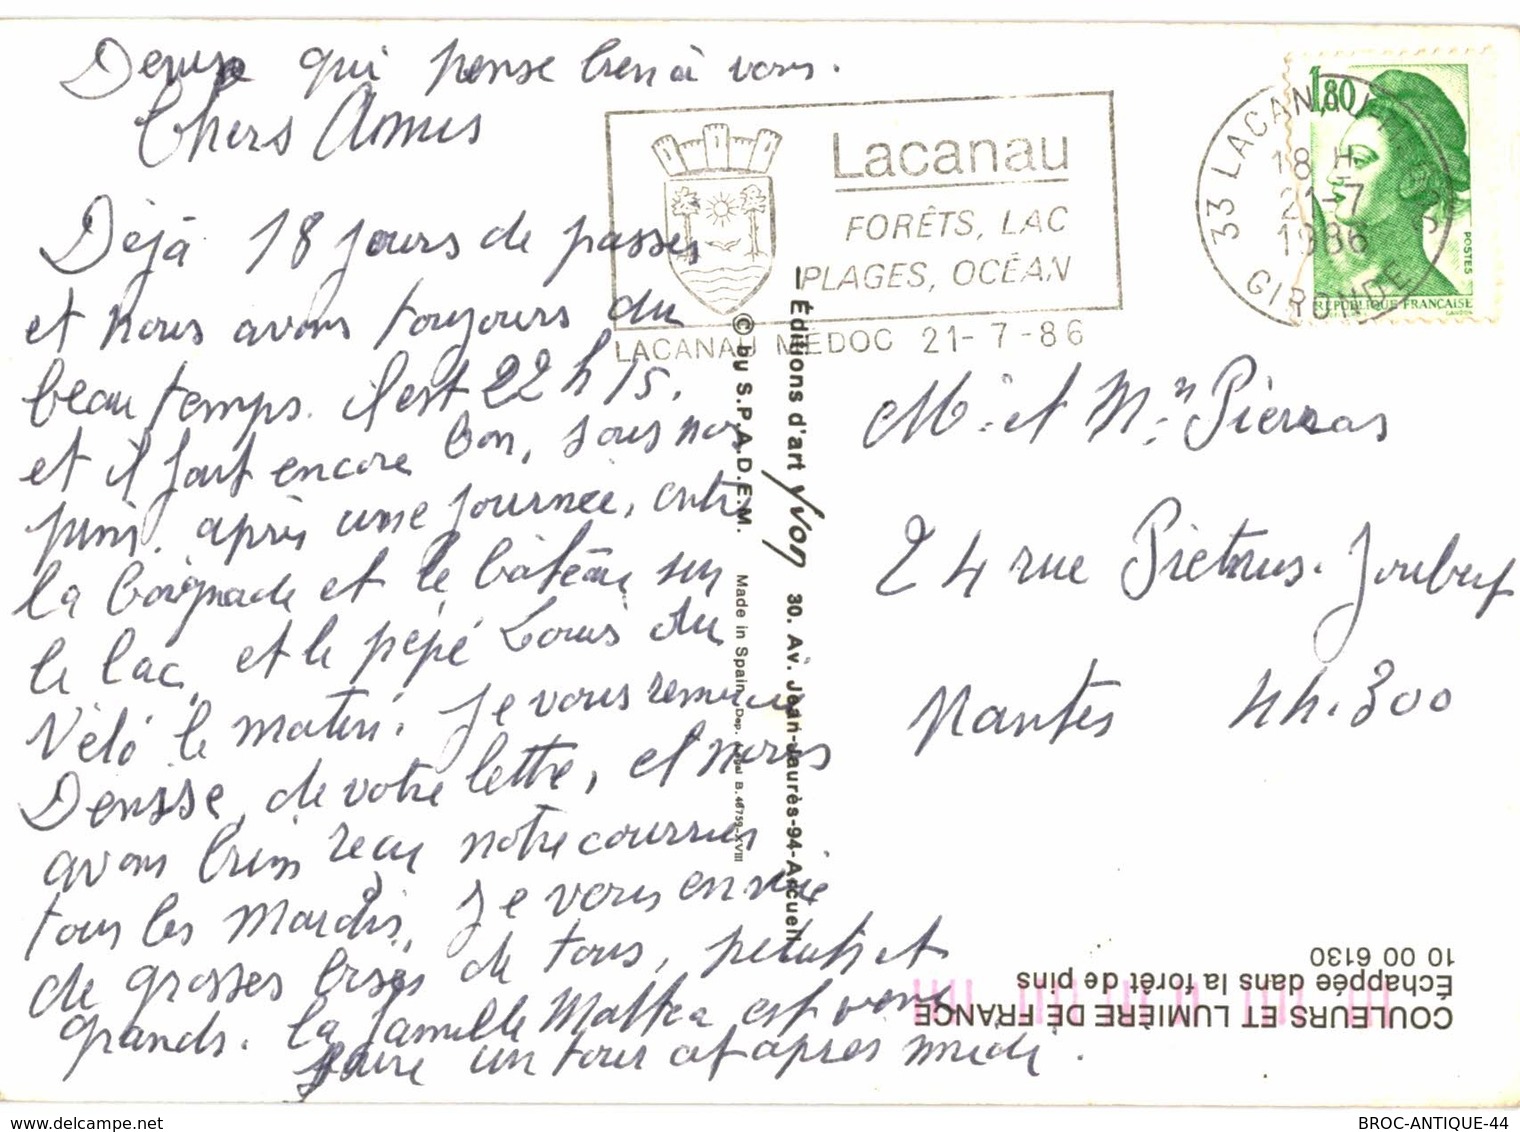 Denise qui pense bien à vous.
Chers Amis
Déjà 18 jours de passés
et nous avons toujours du
beau temps. il est 22 h 15.
et il fait encore bon, sous nos
pins. après une journée, entre
la baignade et le bâteau sur
le lac, et le pépé Louis du
Vélo le matin. Je vous remercie
Denise, de votre lettre, et nous
avons bien reçu notre courrier
tous les Mardis, Je vous envoie
de grosses bises de tous, petits et
grands. la famille est venu
faire un tour cet après midi.
Lacanau
FORÊTS, LAC
PLAGES, OCÉAN
LACANAU MÉDOC 21-7-86
33 LACANAU MÉDOC
18 H
21-7
1986
GIRONDE
1,80
POSTES
RÉPUBLIQUE FRANÇAISE
GANDON
© by S.P.A.D.E.M. Made in Spain. Dep. Legal B. 46759-XVIII
Éditions d'art Yvon 30, Av. Jean-Jaurès-94-Arcueil
M. et Mme
24 rue Joubert
Nantes 44.300
COULEURS ET LUMIÈRE DE FRANCE
Échappée dans la forêt de pins
10 00 6130
www.delcampe.net
BROC-ANTIQUE-44